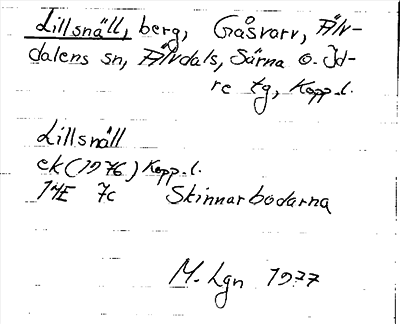 Lillsnäll, berg, Gåsvarv, Älv-
dalens sn, Älvdals, Särna o. Id-
re tg, Kopp. l.
Lillsnäll
ek (1976) Kopp. l.
14E 7c Skinnarbodarna
M. Lgn 1977